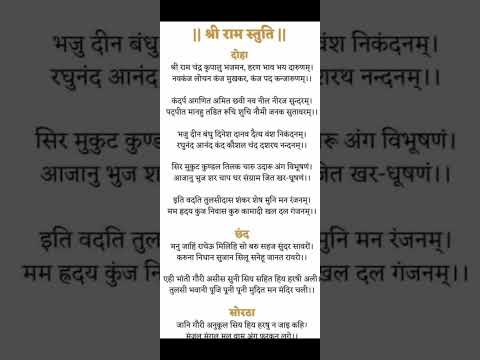 || श्री राम स्तुति ||
दोहा
श्री राम चंद्र कृपालु भजमन, हरण भाव भय दारुणम्।
नवकंज लोचन कंज मुखकर, कंज पद कन्जारुणम्।।
कंदर्प अगणित अमित छवी नव नील नीरज सुन्दरम्।
पट्पीत मानहु तडित रूचि शुचि नौमी जनक सुतावरम्।।
भजु दीन बंधु दिनेश दानव दैत्य वंश निकंदनम्।
रघुनंद आनंद कंद कौशल चंद दशरथ नन्दनम्।।
सिर मुकुट कुण्डल तिलक चारु उदारू अंग विभूषणं।
आजानु भुज शर चाप धर संग्राम जित खर-धूषणं।।
इति वदति तुलसीदास शंकर शेष मुनि मन रंजनम्।
मम ह्रदय कुंज निवास कुरु कामादी खल दल गंजनम्।।
छंद
मनु जाहिं राचेऊ मिलिहि सो बरु सहज सुंदर सावरों।
करुना निधान सुजान सिलू सनेहू जानत रावरो।।
एही भांती गौरी असीस सुनी सिय सहित हिय हरषी अली।
तुलसी भवानी पूजि पूनी पूनी मुदित मन मंदिर चली।।
सोरठा
जानि गौरी अनुकूल सिय हिय हरषु न जाइ कहि।
मंजुल मंगल मूल वाम अंग फरकन लगे।।
भजु दीन बंधु
वंश निकंदनम्।
रघुनंद आनंद
दशरथ नन्दनम्।।
इति वदति
मन रंजनम्।
मम ह्रदय कुंज
खल दल गंजनम्।।